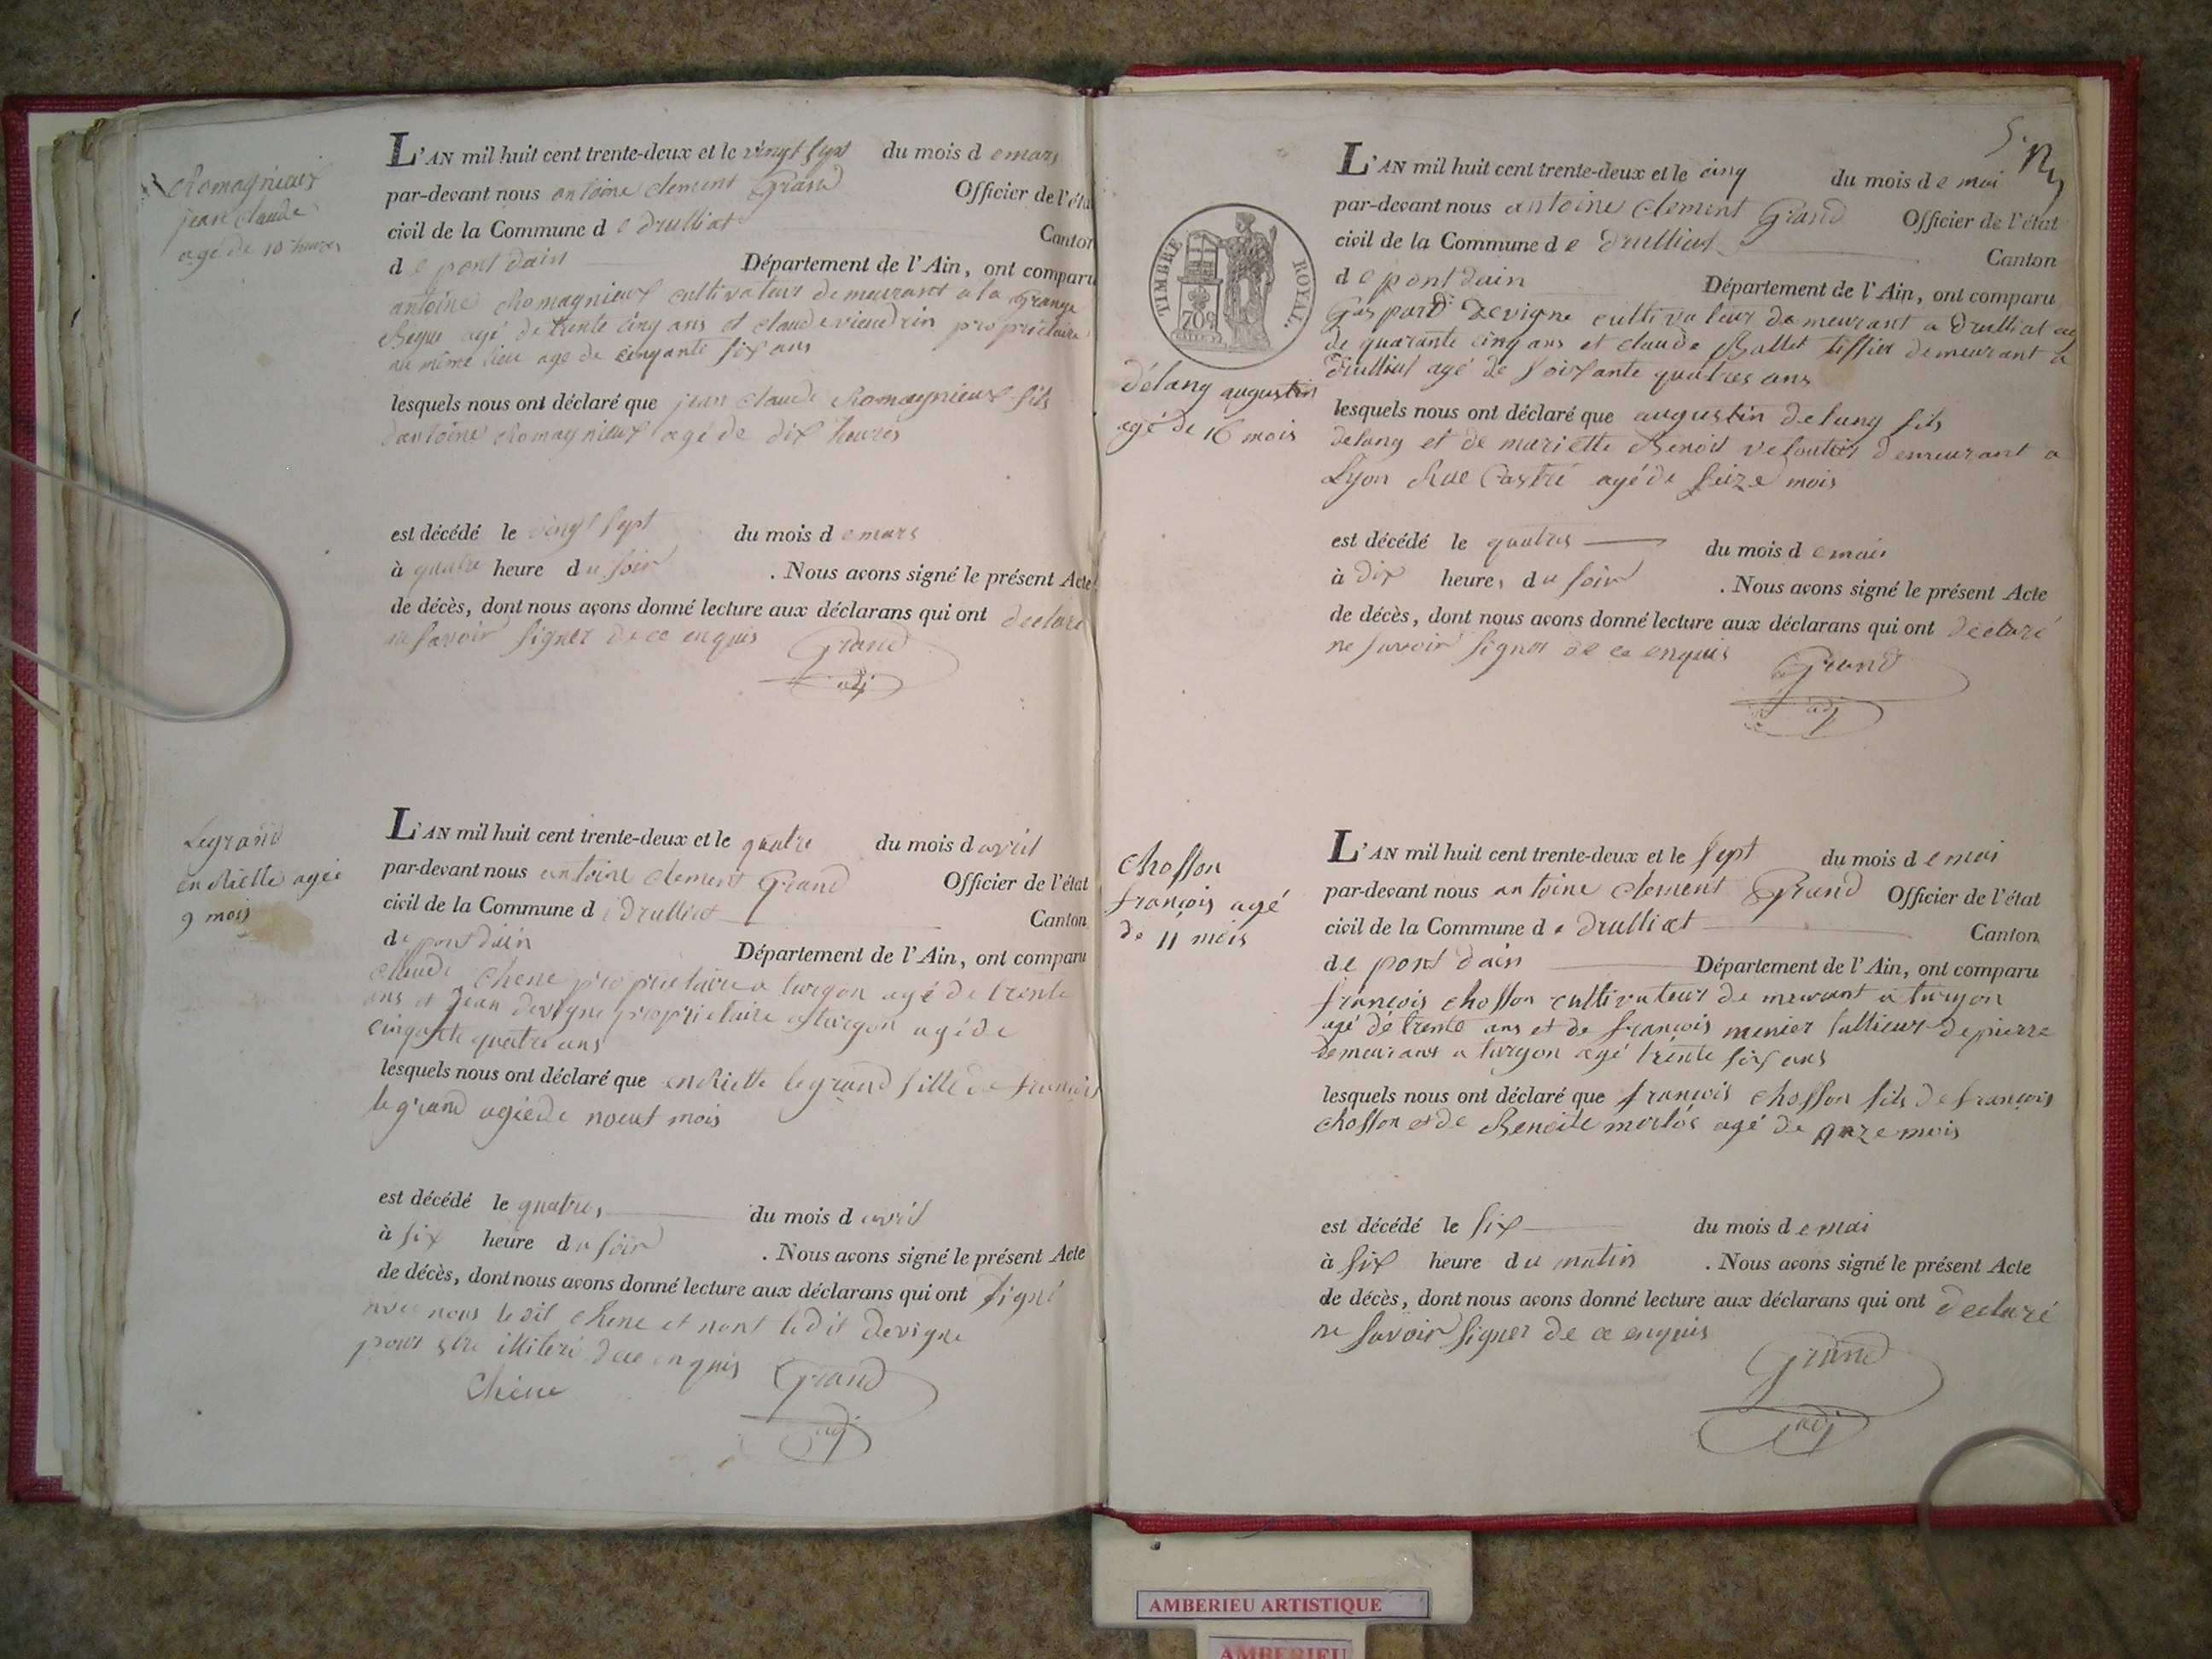 Romagnieux
jean claude
agé de 10 heures
L'AN mil huit cent trente-deux et le vingt sept du mois de mars
par-devant nous antoine clement Grand Officier de l'éta
civil de la Commune de Drulliat Canton
de pont dain Département de l'Ain, ont comparu
antoine Romagnieux cultivateur demeurant a la Grange
agé de trente cinq ans et claude viendrin propriétaire
au même lieu age de cinquante six ans
lesquels nous ont déclaré que jean claude Romagnieux fils
dantoine Romagnieux agé de dix heures
est décédé le vingt sept du mois de mars
à quatre heure du soir . Nous avons signé le présent Acte
de décès, dont nous avons donné lecture aux déclarans qui ont declaré
ne savoir signer de ce enquis Grand
adj
Legrand
enriette agée
9 mois
L'AN mil huit cent trente-deux et le quatre du mois d avril
par-devant nous antoine clement Grand Officier de l'état
civil de la Commune de Drulliat Canton
de pont dain Département de l'Ain, ont comparu
claude chene propriétaire a turgon agé de trente
ans et jean devigne propriétaire a turgon agé de
cinqante quatre ans
lesquels nous ont déclaré que enriette legrand fille de francois
le grand agiée de noeuf mois
est décédé le quatres du mois d avril
à six heure du soir . Nous avons signé le présent Acte
de décès, dont nous avons donné lecture aux déclarans qui ont signé
avec nous le dit chene et nont ledit devigne
pour etre illiteré de ce enquis Grand
Chene
adj
5
L'AN mil huit cent trente-deux et le cinq du mois de mai
par-devant nous antoine clement Grand Officier de l'état
civil de la Commune de Drulliat Canton
de pont dain Département de l'Ain, ont comparu
TIMBRE ROYAL
70c
Gaspard Devigne cultivateur demeurant a Drulliat ag
de quarante cinq ans et claude Ballet tissier demeurant a
Drulliat agé de soixante quatres ans
délang augustin
agé de 16 mois
lesquels nous ont déclaré que augustin delang fils
delang et de mariette Benoit veloutier demeurant a
Lyon Rue Castri agé de seize mois
est décédé le quatres du mois de mai
à dix heures du soir . Nous avons signé le présent Acte
de décès, dont nous avons donné lecture aux déclarans qui ont declaré
ne savoir signer de ce enquis Grand
adj
Chosson
francois agé
de 11 mois
L'AN mil huit cent trente-deux et le sept du mois de mai
par-devant nous antoine clement Grand Officier de l'état
civil de la Commune de Drulliat Canton
de pont dain Département de l'Ain, ont comparu
francois chosson cultivateur demeurant a turgon
agé de trente ans et de francois menier tallieur de pierre
demeurant a turgon agé trente six ans
lesquels nous ont déclaré que francois chosson fils de francois
chosson et de Benoite agé de onze mois
est décédé le six du mois de mai
à six heure du matin . Nous avons signé le présent Acte
de décès, dont nous avons donné lecture aux déclarans qui ont declaré
ne savoir signer de ce enquis
Grand
adj
AMBERIEU ARTISTIQUE
AMBERIEU